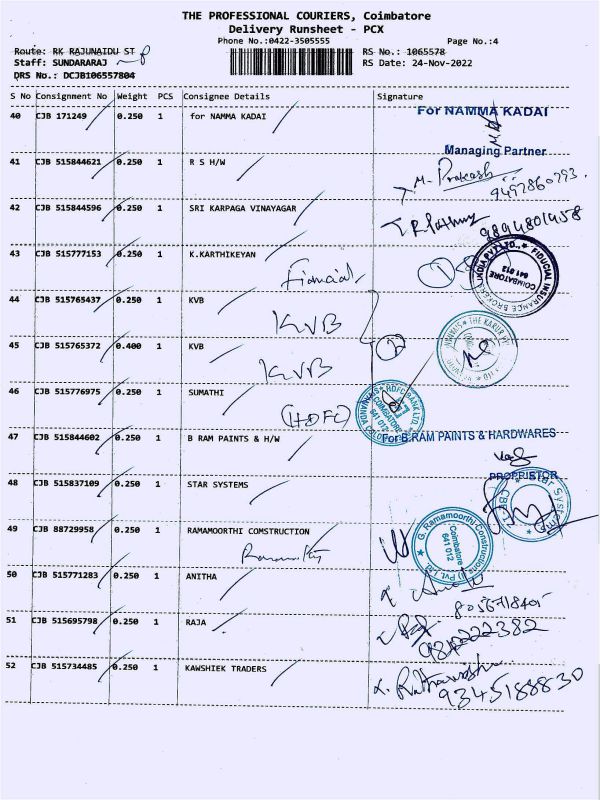 THE PROFESSIONAL COURIERS, Coimbatore
Delivery Runsheet - PCX
Phone No.:0422-3505555 Page No.:4
Route: RK RAJUNAIDU ST RS No.: 1065578
Staff: SUNDARARAJ RS Date: 24-Nov-2022
DRS No.: DCJB106557804
S No Consignment No Weight PCS Consignee Details Signature
40 CJB 171249 0.250 1 for NAMMA KADAI For NAMMA KADAI
Managing Partner
41 CJB 515844621 0.250 1 R S H/W M. Prakash
42 CJB 515844596 0.250 1 SRI KARPAGA VINAYAGAR 9894801458
43 CJB 515777153 0.250 1 K.KARTHIKEYAN
FIDUCIAL INSURANCE BROKERS INDIA PVT LTD., COIMBATORE 641 012
44 CJB 515765437 0.250 1 KVB
KVB
45 CJB 515765372 0.400 1 KVB
KVB
46 CJB 515776975 0.250 1 SUMATHI
(HDFC) HDFC BANK LTD. COIMBATORE 641 012
47 CJB 515844602 0.250 1 B RAM PAINTS & H/W For B.RAM PAINTS & HARDWARES
PROPRIETOR
48 CJB 515837109 0.250 1 STAR SYSTEMS Star Systems
49 CJB 88729958 0.250 1 RAMAMOORTHI COMSTRUCTION
G. Ramamoorthi Constructions (I) Pvt. Ltd. Coimbatore 641 012
50 CJB 515771283 0.250 1 ANITHA
51 CJB 515695798 0.250 1 RAJA
52 CJB 515734485 0.250 1 KAWSHIEK TRADERS
9345188830